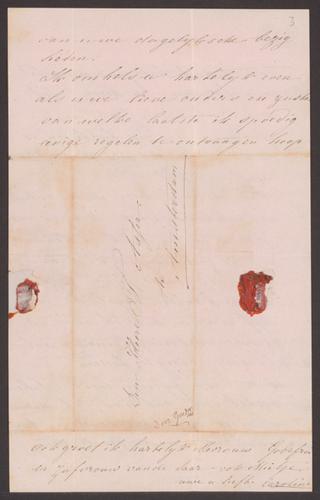 3
van uwe dagelyksche bezig
heden.
Ik omhels u hartelyk even
als uwe lieve ouders en zuster
van welke laatste ik spoedig
eenige regelen te ontvangen hoop
te
Amsterdam
ook groet ik hartelyk Mevrouw
en Jufvrouw vande ook
uwe u liefh. Caroline